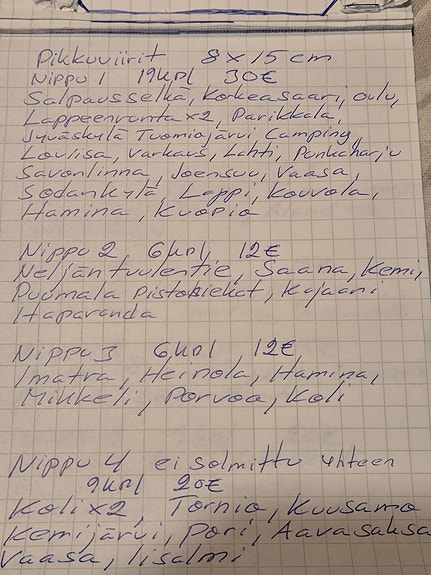 Pikkuviirit 8 x 15 cm
Nippu 1 19kpl 30€
Salpausselkä, Korkeasaari, oulu,
Lappeenranta x2, Parikkala,
Jyväskylä Tuomiojärvi Camping,
Loviisa, Varkaus, Lahti, Punkaharju
Savonlinna, Joensuu, Vaasa,
Sodankylä, Lappi, Kouvola,
Hamina, Kuopio
Nippu 2, 6kpl, 12€
Neljäntuulentie, Saana, Kemi,
Puumala Pistohiekat, Kajaani
Haparanda
Nippu 3 6kpl, 12€
Imatra, Heinola, Hamina,
Mikkeli, Porvoo, Koli
Nippu 4 ei solmittu yhteen
9kpl 20€
Koli x2, Tornio, Kuusamo
Kemijärvi, Pori, Aavasaksa
Vaasa, Iisalmi